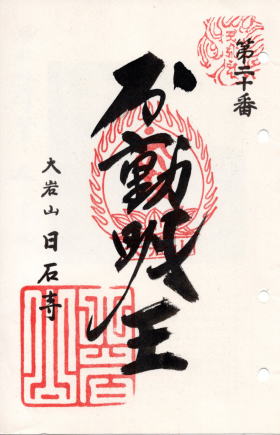 第二十番
不動明王
大岩山 日石寺